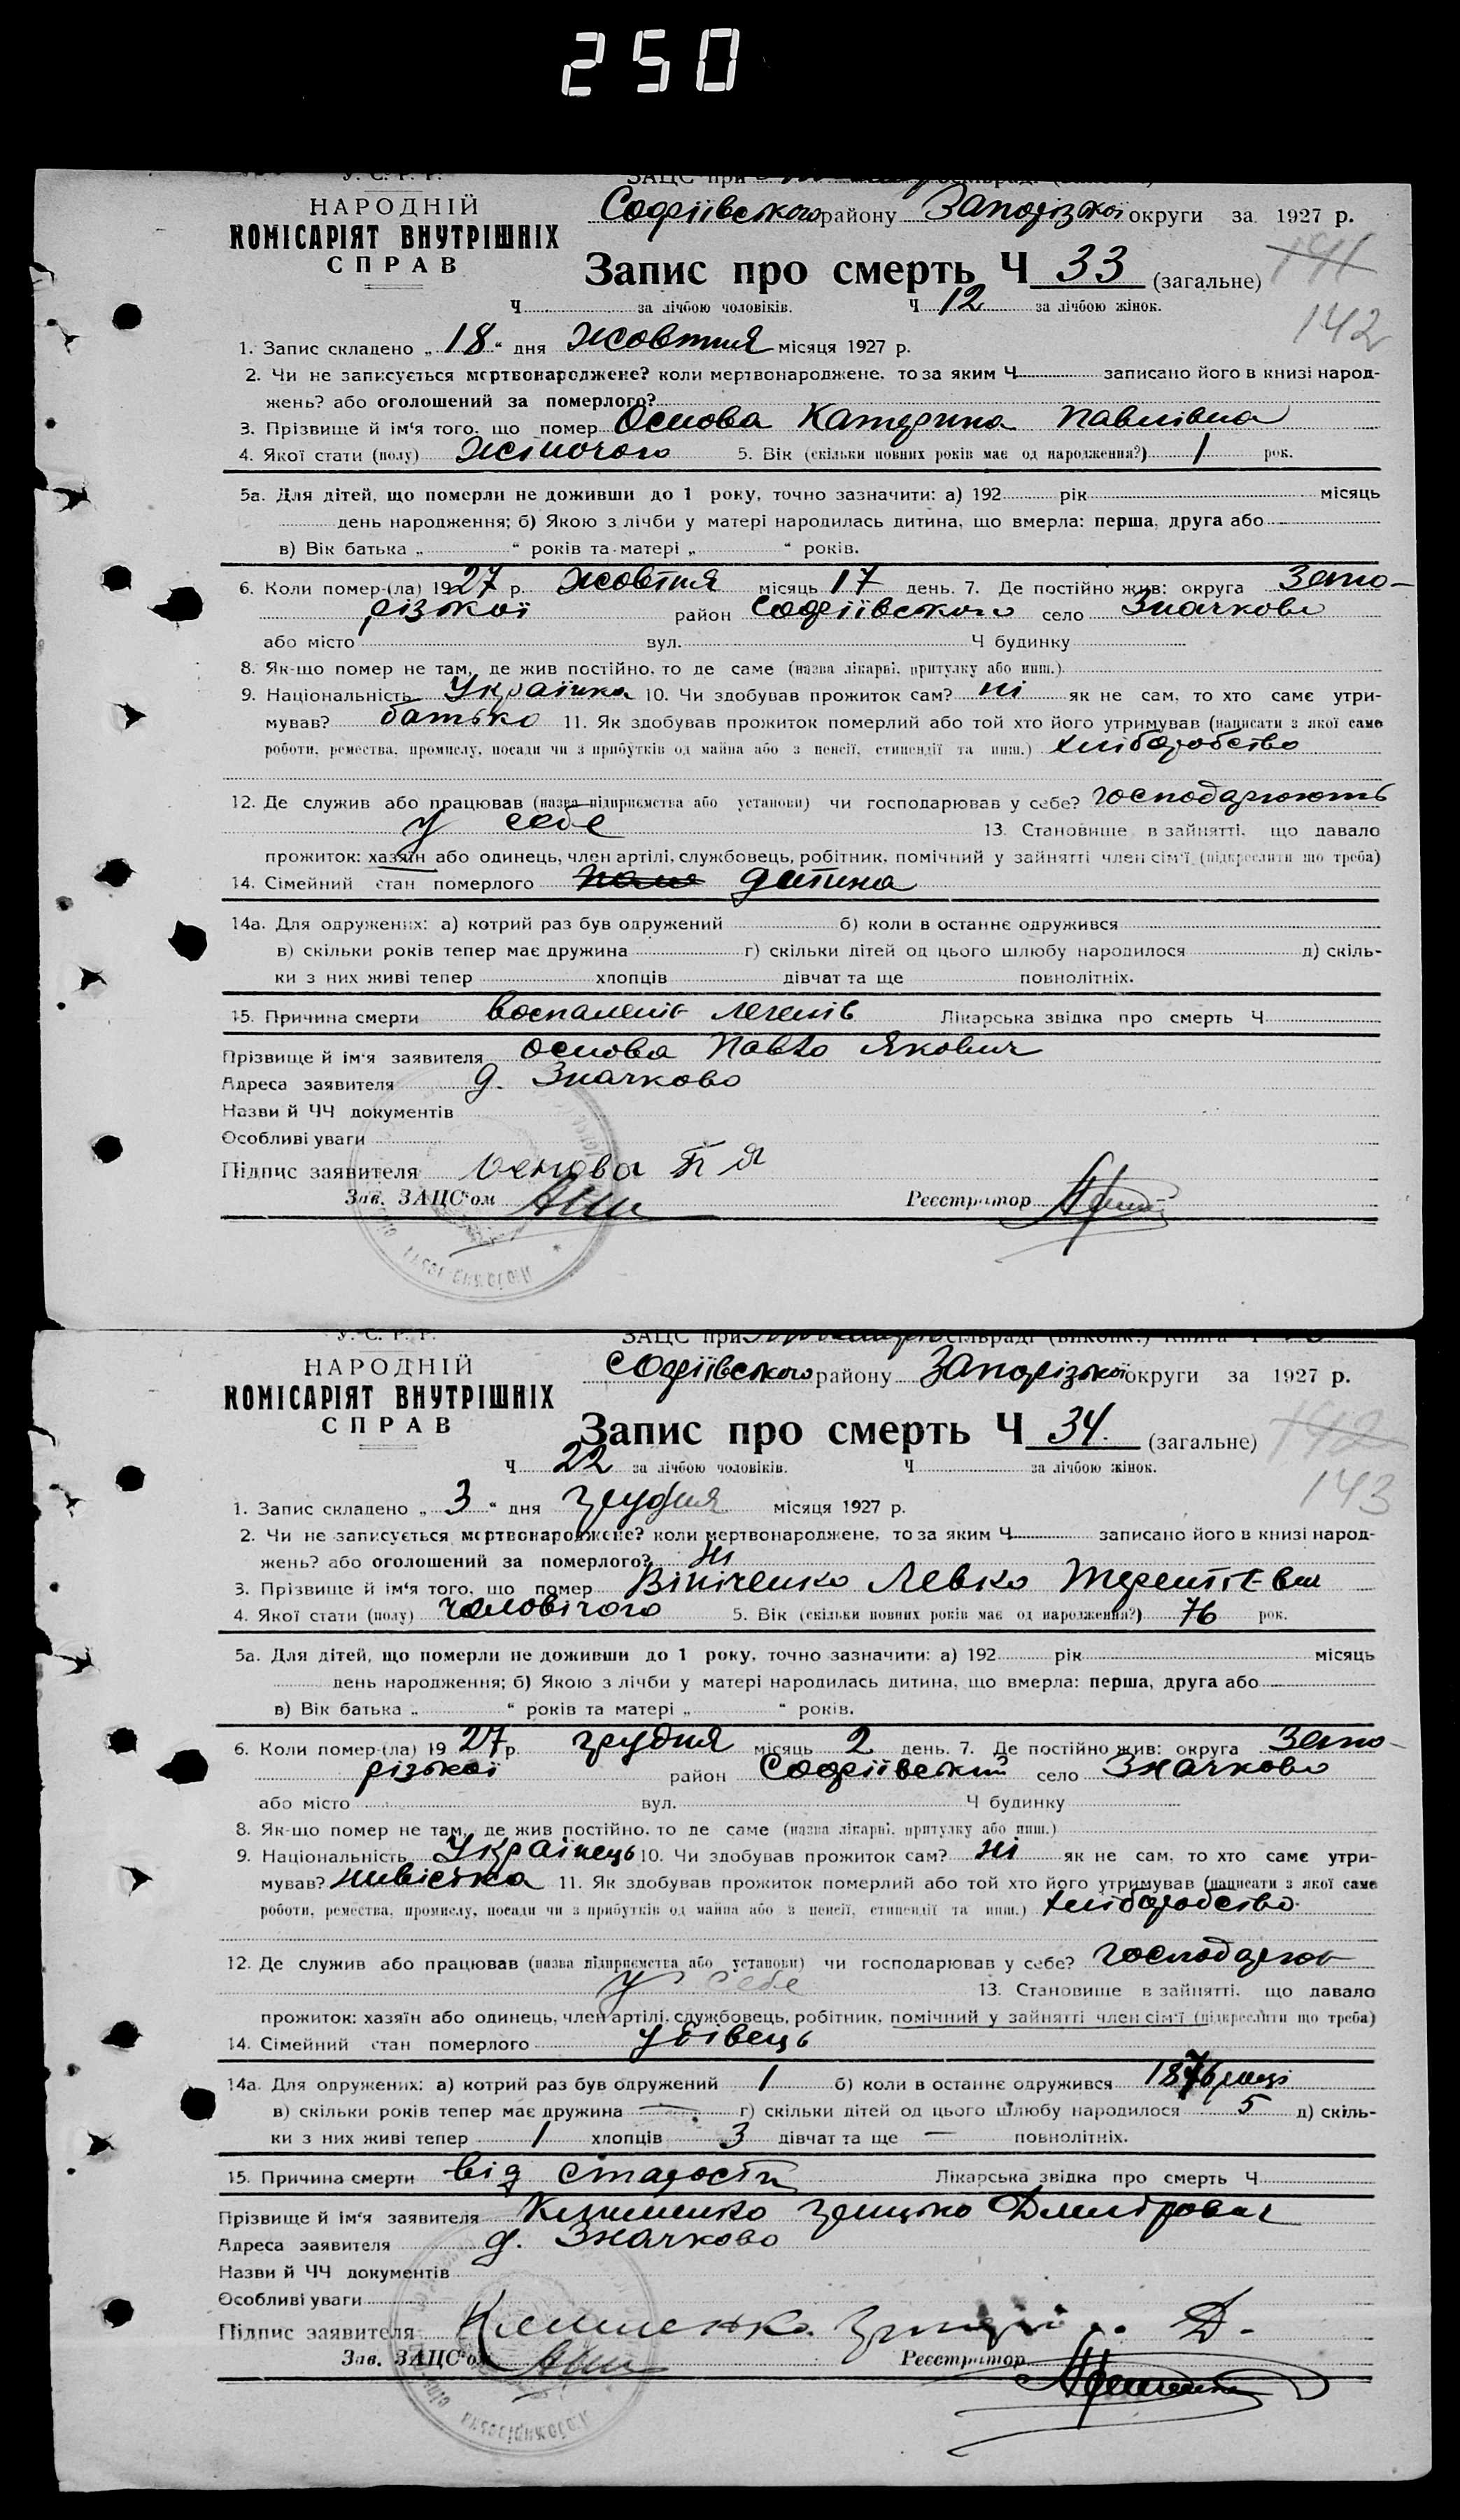 250
У. С. Р. Р.
ЗАЦС при
НАРОДНІЙ
Софіївського району Запорізької округи за 1927 р.
КОМІСАРІЯТ ВНУТРІШНІХ
СПРАВ
Запис про смерть Ч 33 (загальне) 141
Ч за лічбою чоловіків. Ч 12 за лічбою жінок.
142
1. Запис складено „ 18 “ дня жовтня місяця 1927 р.
2. Чи не записується мертвонароджене? коли мертвонароджене, то за яким Ч записано його в книзі народ-
жень? або оголошений за померлого?
3. Прізвище й ім‘я того, що помер Основа Катерина Павлівна
4. Якої стати (полу) жіночого 5. Вік (скільки повних років має од народження?) 1 рок.
5а. Для дітей, що померли не доживши до 1 року, точно зазначити: а) 192 рік місяць
день народження; б) Якою з лічби у матері народилась дитина, що вмерла: перша, друга або
в) Вік батька „ “ років та матері „ “ років.
6. Коли помер-(ла) 1927 р. жовтня місяць 17 день. 7. Де постійно жив: округа Запо-
різької район Софіївського село Значково
або місто вул. Ч будинку
8. Як-що помер не там, де жив постійно, то де саме (назва лікарні, притулку або инш.)
9. Національність Українка 10. Чи здобував прожиток сам? ні як не сам, то хто саме утри-
мував? батько 11. Як здобував прожиток померлий або той хто його утримував (написати з якої саме
роботи, ремества, промислу, посади чи з прибутків од майна або з пенсії, стипендії та инш.) хліборобство
12. Де служив або працював (назва підприємства або установи) чи господарював у себе? господарюють
у себе 13. Становище в зайнятті, що давало
прожиток: хазяїн або одинець, член артілі, службовець, робітник, помічний у зайнятті член сім‘ї (підкреслити що треба)
14. Сімейний стан померлого дитина
14а. Для одружених: а) котрий раз був одружений б) коли в останнє одружився
в) скільки років тепер має дружина г) скільки дітей од цього шлюбу народилося д) скіль-
ки з них живі тепер хлопців дівчат та ще повнолітніх.
15. Причина смерти воспаленіє легенів Лікарська звідка про смерть Ч
Прізвище й ім‘я заявителя Основа Павло Якович
Адреса заявителя д. Значково
Назви й ЧЧ документів
Особливі уваги
Підпис заявителя Основа П Я
Зав. ЗАЦС‘ом Реєстратор
У. С. Р. Р.
ЗАЦС при сільраді (виконк.) Книга
НАРОДНІЙ
Софіївського району Запорізької округи за 1927 р.
КОМІСАРІЯТ ВНУТРІШНІХ
СПРАВ
Запис про смерть Ч 34. (загальне) 142
Ч 22 за лічбою чоловіків. Ч за лічбою жінок.
143
1. Запис складено „ 3 “ дня грудня місяця 1927 р.
2. Чи не записується мертвонароджене? коли мертвонароджене, то за яким Ч записано його в книзі народ-
жень? або оголошений за померлого? Ні
3. Прізвище й ім‘я того, що помер Вініченко Левко Терентієвич
4. Якої стати (полу) чоловічого 5. Вік (скільки повних років має од народження?) 76 рок.
5а. Для дітей, що померли не доживши до 1 року, точно зазначити: а) 192 рік місяць
день народження; б) Якою з лічби у матері народилась дитина, що вмерла: перша, друга або
в) Вік батька „ “ років та матері „ “ років.
6. Коли помер-(ла) 1927 р. грудня місяць 2 день. 7. Де постійно жив: округа Запо-
різької район Софіївський село Значково
або місто вул. Ч будинку
8. Як-що помер не там, де жив постійно, то де саме (назва лікарні, притулку або инш.)
9. Національність Українець 10. Чи здобував прожиток сам? ні як не сам, то хто саме утри-
мував? нивістка 11. Як здобував прожиток померлий або той хто його утримував (написати з якої саме
роботи, ремества, промислу, посади чи з прибутків од майна або з пенсії, стипендії та инш.) хліборобство
12. Де служив або працював (назва підприємства або установи) чи господарював у себе? господарює
у себе 13. Становище в зайнятті, що давало
прожиток: хазяїн або одинець, член артілі, службовець, робітник, помічний у зайнятті член сім‘ї (підкреслити що треба)
14. Сімейний стан померлого удівець
14а. Для одружених: а) котрий раз був одружений 1 б) коли в останнє одружився 1876 році
в) скільки років тепер має дружина — г) скільки дітей од цього шлюбу народилося 5 д) скіль-
ки з них живі тепер 1 хлопців 3 дівчат та ще — повнолітніх.
15. Причина смерти від старости Лікарська звідка про смерть Ч
Прізвище й ім‘я заявителя Клименко Грицько Дмитрович
Адреса заявителя д. Значково
Назви й ЧЧ документів
Особливі уваги
Підпис заявителя Клименко Д.
Зав. ЗАЦС‘ом Реєстратор